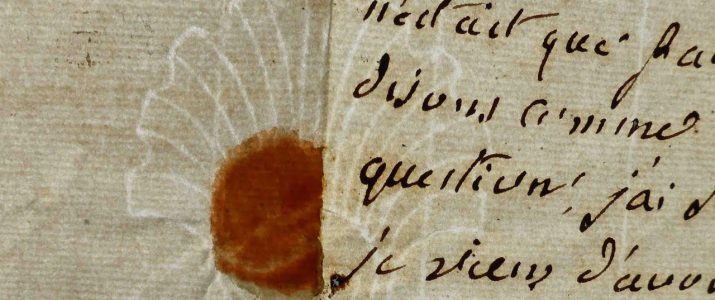 n'était que
disons comme
question, j'ai
je viens d'avoi